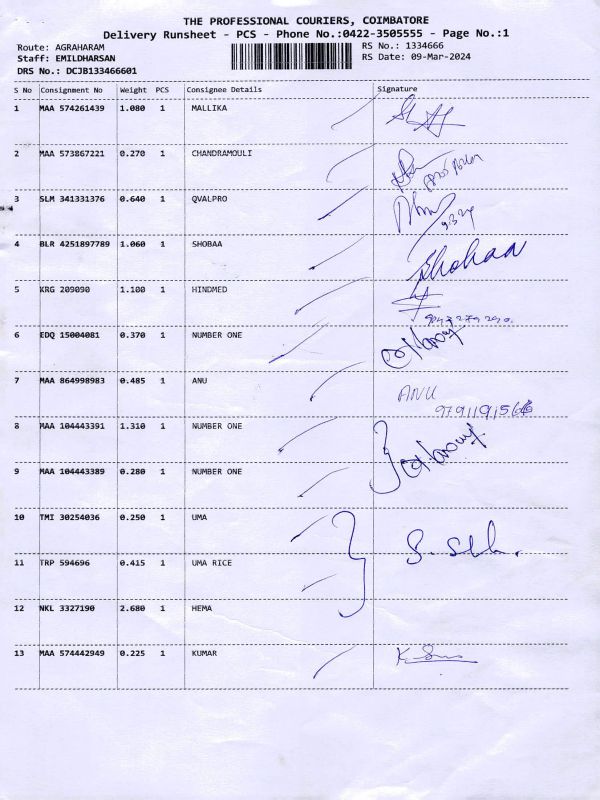 THE PROFESSIONAL COURIERS, COIMBATORE
Delivery Runsheet - PCS - Phone No.:0422-3505555 - Page No.:1
Route: AGRAHARAM RS No.: 1334666
Staff: EMILDHARSAN RS Date: 09-Mar-2024
DRS No.: DCJB133466601
S No Consignment No Weight PCS Consignee Details Signature
1 MAA 574261439 1.080 1 MALLIKA
2 MAA 573867221 0.270 1 CHANDRAMOULI
3 SLM 341331376 0.640 1 QVALPRO
9.3.24
4 BLR 4251897789 1.060 1 SHOBAA Shobaa
5 KRG 209090 1.100 1 HINDMED
6 EDQ 15004081 0.370 1 NUMBER ONE
7 MAA 864998983 0.485 1 ANU ANU
8 MAA 104443391 1.310 1 NUMBER ONE
9 MAA 104443389 0.280 1 NUMBER ONE
10 TMI 30254036 0.250 1 UMA
11 TRP 594696 0.415 1 UMA RICE
12 NKL 3327190 2.680 1 HEMA
13 MAA 574442949 0.225 1 KUMAR